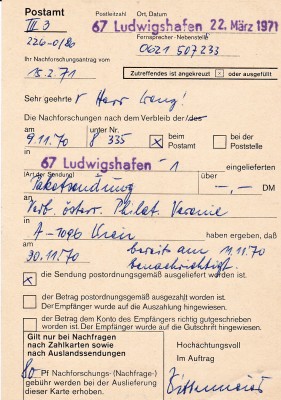 Postamt Postleitzahl Ort, Datum
III 3 67 Ludwigshafen 22. März 1971
226-0/80 Fernsprecher-Nebenstelle
0621 507233
Ihr Nachforschungsantrag vom
15.2.71 Zutreffendes ist angekreuzt x oder ausgefüllt
Sehr geehrte r Herr !
Die Nachforschungen nach dem Verbleib der/des
am unter Nr. beim bei der
9.11.70 8 335 x Postamt Poststelle
in 67 Ludwigshafen -1 eingelieferten
(Art der Sendung) über
Paketsendung -,- DM
an
Verb. österr. Philat. Vereine
in
A-1096 Wien haben ergeben, daß
am bereits am 11.11.70
30.11.70 benachrichtigt.
x die Sendung postordnungsgemäß ausgeliefert worden ist.
der Betrag postordnungsgemäß ausgezahlt worden ist.
Der Empfänger wurde auf die Auszahlung hingewiesen.
der Betrag dem Konto des Empfängers richtig gutgeschrieben
worden ist. Der Empfänger wurde auf die Gutschrift hingewiesen.
Gilt nur bei Nachfragen
nach Zahlkarten sowie
nach Auslandssendungen
Hochachtungsvoll
Im Auftrag
80 Pf Nachforschungs-(Nachfrage-)
gebühr werden bei der Auslieferung
dieser Karte erhoben.